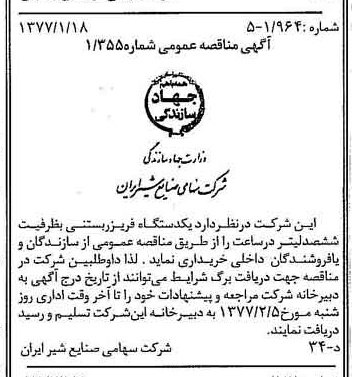 شماره :۵-۱/۹۶۴ ۱۳۷۷/۱/۱۸
آگهی مناقصه عمومی شماره۱/۳۵۵
همه با هم
جهاد
سازندگی
وزارت جهاد سازندگی
شرکت سهامی صنایع شیر ایران
این شرکت درنظردارد یکدستگاه فریزربستنی بظرفیت
ششصدلیتر درساعت را از طریق مناقصه عمومی از سازندگان و
یافروشندگان داخلی خریداری نماید . لذا داوطلبین شرکت در
مناقصه جهت دریافت برگ شرایط می‌توانند از تاریخ درج آگهی به
دبیرخانه شرکت مراجعه و پیشنهادات خود را تا آخر وقت اداری روز
شنبه مورخ۱۳۷۷/۲/۵ به دبیرخانه این‌شرکت تسلیم و رسید
دریافت نمایند.
د-۳۴ شرکت سهامی صنایع شیر ایران